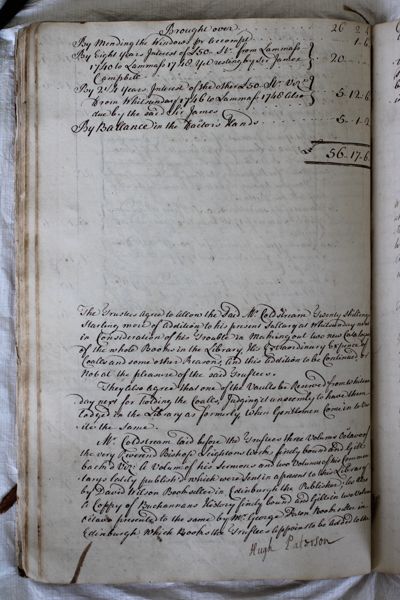 Brought over 26 2
By Mending the Windows per Accompt 1 6
By Eight Years Interest of £50 St. from Lammass
1740 to Lammass 1748 resting by Sir James 20
Campbell
By 2 1/4 Years Interest of the other £50 St. Vizt.
From Whitsunday 1746 to Lammass 1748 also 5 12 6
due by the said Sir James
By Ballance in the Factors Hands 5 1
56 17 6
The Trustees Agree to Allow the said Mr. Coldstream Twenty Shillings
Starling more of addition to his present Sallary at Whitsunday next
in Consideration of his Trouble in Making out two new Catalogues
of the whole Books in the Library, His Extraordinary Expence of
Coalls and some other Reasons, and this addition to be Continued or
Not at the pleasure of the said Trustees.
They also Agree that one of the Vaults be Reserved from Whitsun
day next for holding the Coalls, Judging it unseemly to have them
lodged in the Library as formerly when Gentlemen Come in to Vi
site the Same.
Mr. Coldstream laid before the Trustees three Volums Octavo of
the very Reverend Bishop Leightons Works finely bound and Gilt
back Vizt. A Volum of his Sermons and two Volums of his Commen
tarys lately publish'd which were Sent in a present to this Library
by David Wilson Bookseller in Edinburgh the Publisher; As also
a Coppy of Buchannans History finely bound and Gilt in two Volums
Octavo presented to the same by Mr. George Paton Bookseller in
Edinburgh Which Books the Trustees Appoint to be added to the
Hugh Paterson